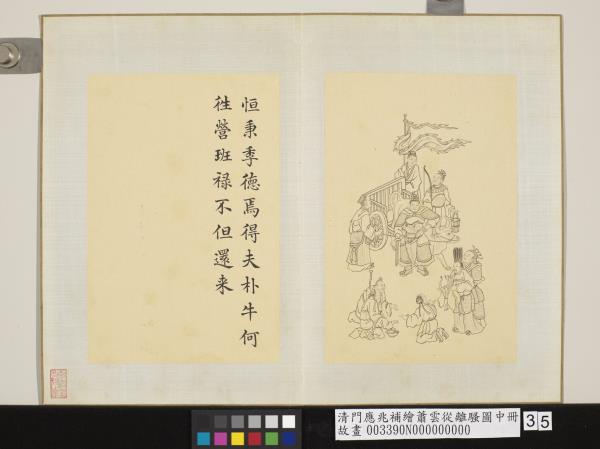 恒秉季德焉得夫朴牛何
徃營班禄不但還来
清門應兆補繪蕭雲從離騷圖中冊
故畫 003390N000000000
35